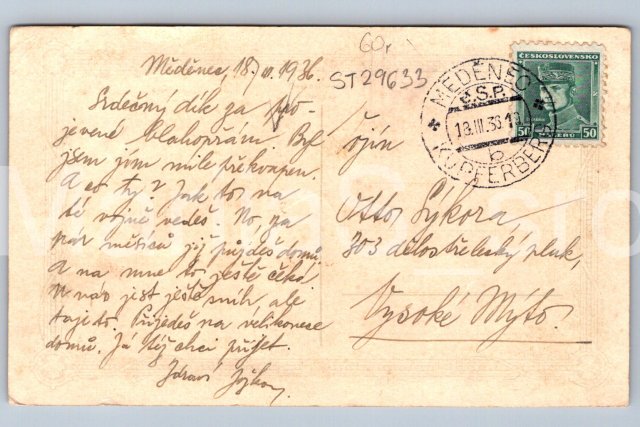 60,-
ST29633
Měděnec, 18./III. 1936.
Srdečný dík za pro-
jevené blahopřání. Byl
jsem jím mile překvapen.
A co ty? Jak to na
té vojně vedeš. No, za
pár měsíců již přijdeš domů
A na mne to ještě čeká.
U nás jest ještě sníh, ale
taje to. Přijedeš na velikonoce
domů. Já též chci přijet.
Zdraví
ČESKOSLOVENSKO
50 50
MĚDĚNEC
Č.S.P.
18.III.36
b
KUPFERBERG
Vojín
Otto Sýkora,
303 dělostřelecký pluk,
Vysoké Mýto.